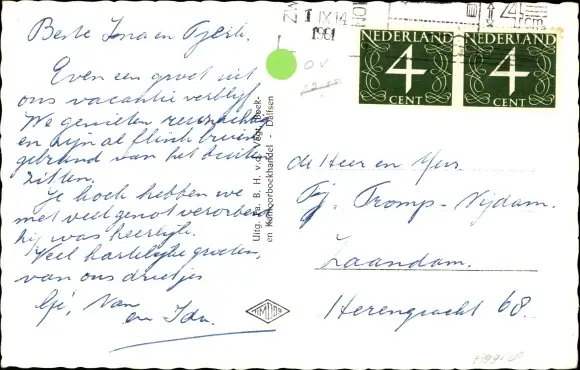 Beste Ina en Tjerk.
Even een groet uit
ons vacantie verblijf
We genieten reusachtig
en zijn al flink bruin
gebrand van het buiten
zitten.
Je koek hebben we
met veel genot verorberd
hij was heerlijk.
Veel hartelijke groeten,
van ons drietjes
Gé, Nan
en Ida.
Uitg. Fa. B. H. v.d. Vegt, Boek-
en Kantoorboekhandel - Dalfsen
1 IX 14
1961
NEDERLAND
4
CENT
NEDERLAND
4
CENT
de Heer en Mevr.
Tj. Tromp-Nijdam.
Zaandam.
Herengracht 68.